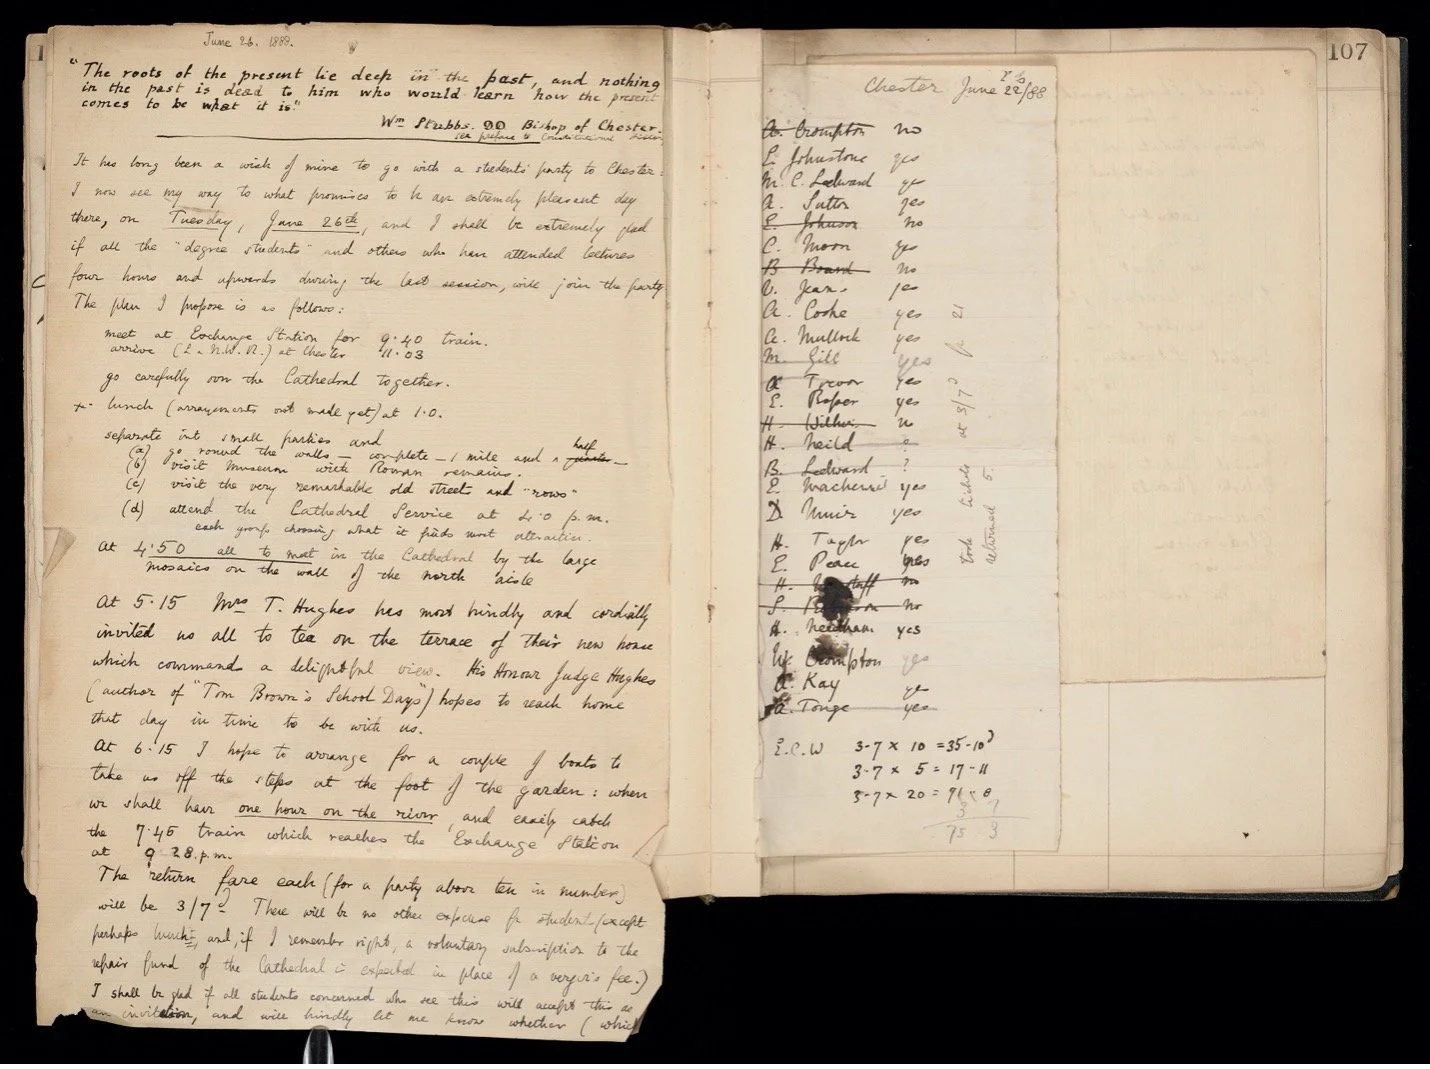 June 26. 1888.
"The roots of the present lie deep in the past, and nothing
in the past is dead to him who would learn how the present
comes to be what it is."
Wm Stubbs. DD Bishop of Chester.
see preface to Constitutional History
It has long been a wish of mine to go with a students' party to Chester.
I now see my way to what promises to be an extremely pleasant day
there, on Tuesday, June 26th, and I shall be extremely glad
if all the "degree students" and others who have attended lectures
four hours and upwards during the last session, will join the party
The plan I propose is as follows:
meet at Exchange Station for 9.40 train.
arrive (L. & N.W.R.) at Chester 11.03
go carefully over the Cathedral together.
lunch (arrangements not made yet) at 1.0.
separate into small parties and
(a) go round the walls — complete — 1 mile and a quarter half
(b) visit Museum with Roman remains.
(c) visit the very remarkable old streets and "rows"
(d) attend the Cathedral Service at 4.0 p.m.
each group choosing what it finds most attractive.
At 4.50 all to meet in the Cathedral by the large
mosaics on the wall of the north aisle
At 5.15 Mrs T. Hughes has most kindly and cordially
invited us all to tea on the terrace of their new house
which commands a delightful view. His Honour Judge Hughes
(author of "Tom Brown's School Days") hopes to reach home
that day in time to be with us.
At 6.15 I hope to arrange for a couple of boats to
take us off the steps at the foot of the garden: when
we shall have one hour on the river, and easily catch
the 7.45 train which reaches the Exchange Station
at 9 28.p.m.
The return fare each (for a party above ten in number)
will be 3/7d. There will be no other expense for students (except
perhaps lunch, and, if I remember right, a voluntary subscription to the
repair fund of the Cathedral is expected in place of a verger's fee.)
I shall be glad if all students concerned who see this will accept this as
an invitation, and will kindly let me know whether (which
107
Chester June 22/88
26
A. Crompton no
E. Johnstone yes
M. C. Ledward yes
A. Sutton yes
E. Johnson no
C. Moon yes
B Board no
V. Jeans yes
A. Cooke yes
A. Mullock yes
M. Gill yes
A Trevor yes
E. Roper yes
H. no
H. Neild ?
B. Ledward ?
E. yes
D. Muir yes
H. Taylor yes
E. Peace yes
H. no
S. Robinson no
H. Needham yes
W. Crompton yes
A. Kay yes
A. Tonge yes
took tickets at 3/7d for 21
returned 5.
E.C.W 3-7 x 10 = 35-10
3-7 x 5 = 17-11
3-7 x 20 = 71 8
3 7
75 3